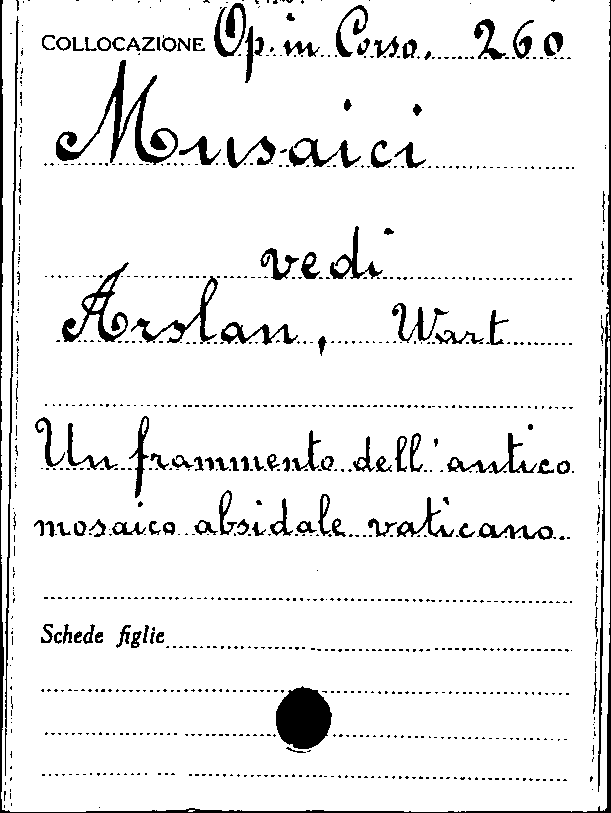 COLLOCAZIONE Op. in Corso. 260
Musaici
vedi
Arslan, Wart
Un frammento dell'antico
mosaico absidale vaticano.
Schede figlie